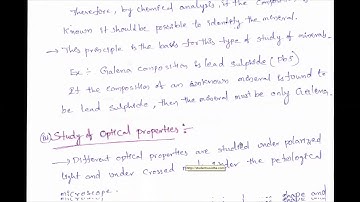 Therefore, by chemical analysis, if the composi
known it should be possible to identify the mineral.
→ This principle is the basis for this type of study of minerals
Ex:- Galena composition is lead sulphide (Pbs)
If the composition of an unknown mineral is found to
be lead sulphide, then the mineral must be only Galena.
Study of Optical properties:-
→ Different optical properties are studied under polarized
light and under crossed under the petrological
microscope.
shape and